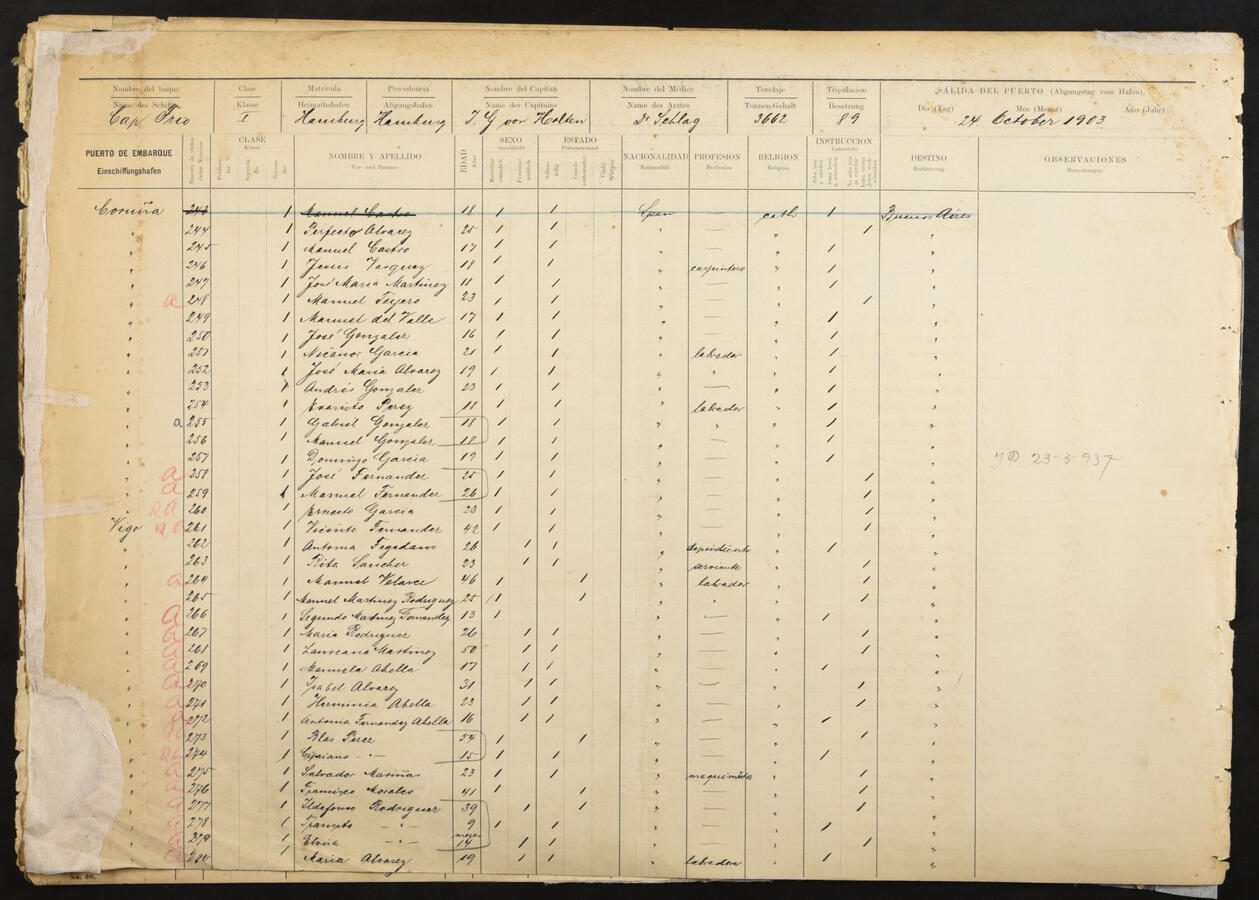 Nombre del buque Clase Matrícula Procedencia Nombre del Capitan Nombre del Médico Tonelaje Tripulacion SÁLIDA DEL PUERTO (Abgangstag vom Hafen)
Name des Schiffes Klasse Heimathshafen Abgangshafen Name des Capitains Name des Arztes Tonnen-Gehalt Besatzung Dia (Tag) Mes (Monat) Año (Jahr)
Cap Frio I Hamburg Hamburg J. G von Holten Dr Schlag 3662 89 24. October 1903.
PUERTO DE EMBARQUE CLASE NOMBRE Y APELLIDO EDAD SEXO ESTADO NACIONALIDAD PROFESION RELIGION INSTRUCCION DESTINO OBSERVACIONES
Einschiffungshafen Klasse Vor- und Zuname Alter Geschlecht Personenstand Nationalität Profession Religion Unterricht Bestimmung Bemerkungen
Coruña 243 1 Manuel Castro 18 1 1 Span — cath 1 Buenos Aires
" 244 1 Perfecto Alvarez 25 1 1 " — " 1 "
" 245 1 Manuel Castro 17 1 1 " — " 1 "
" 246 1 Jesus Vazquez 18 1 1 " carpintero " 1 "
" 247 1 José Maria Martinez 18 1 1 " — " 1 "
a " 248 1 Manuel Teyero 23 1 1 " — " 1 "
" 249 1 Manuel del Valle 17 1 1 " — " 1 "
" 250 1 José Gonzalez 16 1 1 " — " 1 "
" 251 1 Nicanor Garcia 21 1 1 " labrador " 1 "
" 252 1 José Maria Alvarez 19 1 1 " " " 1 "
" 253 1 Andrés Gonzalez 23 1 1 " — " 1 "
" 254 1 Evaristo Perez 18 1 1 " labrador " 1 "
a " 255 1 Gabriel Gonzalez 18 1 1 " " " 1 "
" 256 1 Manuel Gonzalez 18 1 1 " — " 1 "
" 257 1 Domingo Garcia 19 1 1 " — " 1 " 23-3-937
a " 258 1 José Fernandez 25 1 1 " — " 1 "
a " 259 1 Manuel Fernandez 26 1 1 " — " 1 "
" 260 1 Ernesto Garcia 23 1 1 " — " 1 "
Vigo 261 1 Vicente Fernandez 42 1 " — " 1 "
" 262 1 Antonia 26 1 1 " dependiente " 1 "
" 263 1 Rita Sanchez 23 1 1 " serviente " 1 "
a " 264 1 Manuel Velarce 46 1 1 " labrador " 1 "
" 265 1 Manuel Martinez Rodriguez 25 1 1 " " " 1 "
" 266 1 Segundo Martinez Fernandez 13 1 " — " 1 "
" 267 1 Maria Rodriguez 26 1 1 " — " 1 "
" 268 1 Laureana Martinez 50 1 1 " — " 1 "
" 269 1 Manuela Abella 17 1 1 " — " 1 "
" 270 1 Isabel Alvarez 31 1 1 " — " 1 "
" 271 1 Herminia Abella 23 1 1 " — " 1 "
" 272 1 Antonia Fernandez Abella 16 1 1 " — " 1 "
" 273 1 Blas Perez 54 1 1 " — " 1 "
" 274 1 Cipriano - " - 15 1 1 " — " 1 "
" 275 1 Salvador Mariñas 23 1 1 " maquinista " 1 "
" 276 1 Francisco Morales 41 1 1 " — " 1 "
" 277 1 Ildefonso Rodriguez 39 1 1 " — " 1 "
" 278 1 Transito - " - 9 1 " — " 1 "
" 279 1 Elvira - " - meses 14 1 1 " — " "
" 280 1 Maria Alvarez 19 1 1 " labradora " 1 "
No. 20.